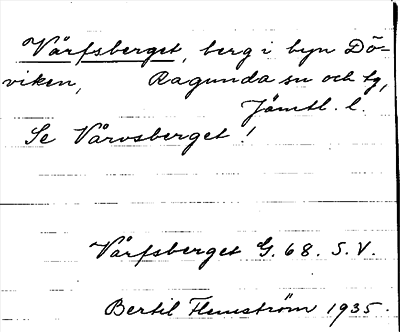 Vårfsberget, berg i byn Dö-
viken, Ragunda sn och tg,
Jämtl. l.
Se Vårvsberget!
Vårfsberget G. 68. S.V.
Bertil Flemström 1935.